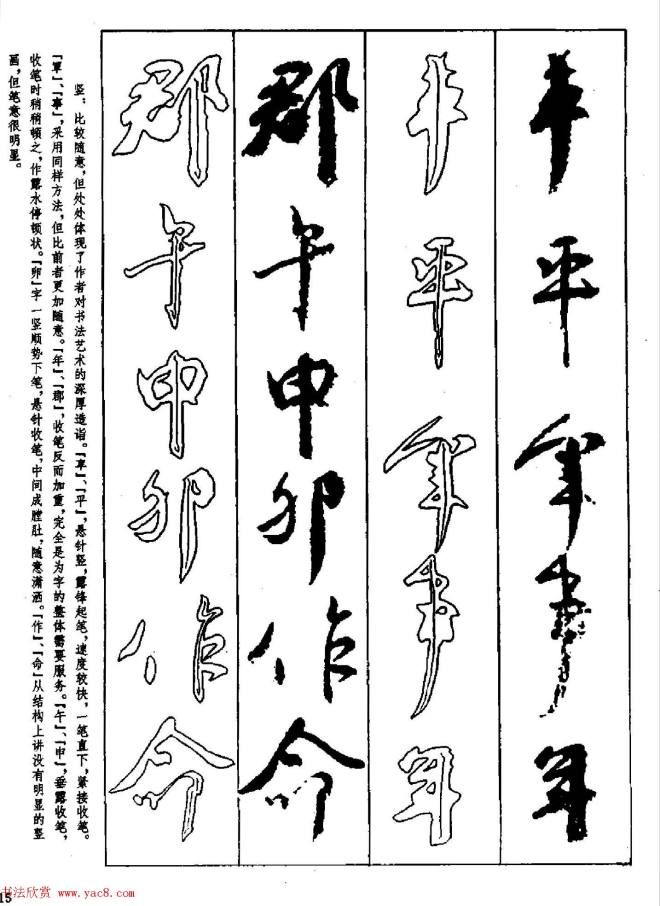 車平軍事年
車平軍事年
郡午申卯作命
郡午申卯作命
竖:比较随意,但处处体现了作者对书法艺术的深厚造诣。『車』、『平』,悬针竖,露锋起笔,速度较快,一笔直下,紧接收笔。
『軍』、『事』,采用同样方法,但比前者更加随意。『年』、『郡』,收笔反而加重,完全是为字的整体需要服务。『午』、『申』,垂露收笔,
收笔时稍稍顿之,作露水停顿状。『卯』字一竖顺势下笔,悬针收笔,中间成膛肚,随意潇洒。『作』、『命』从结构上讲没有明显的竖
画,但笔意很明显。
15
书法欣赏 www.yac8.com